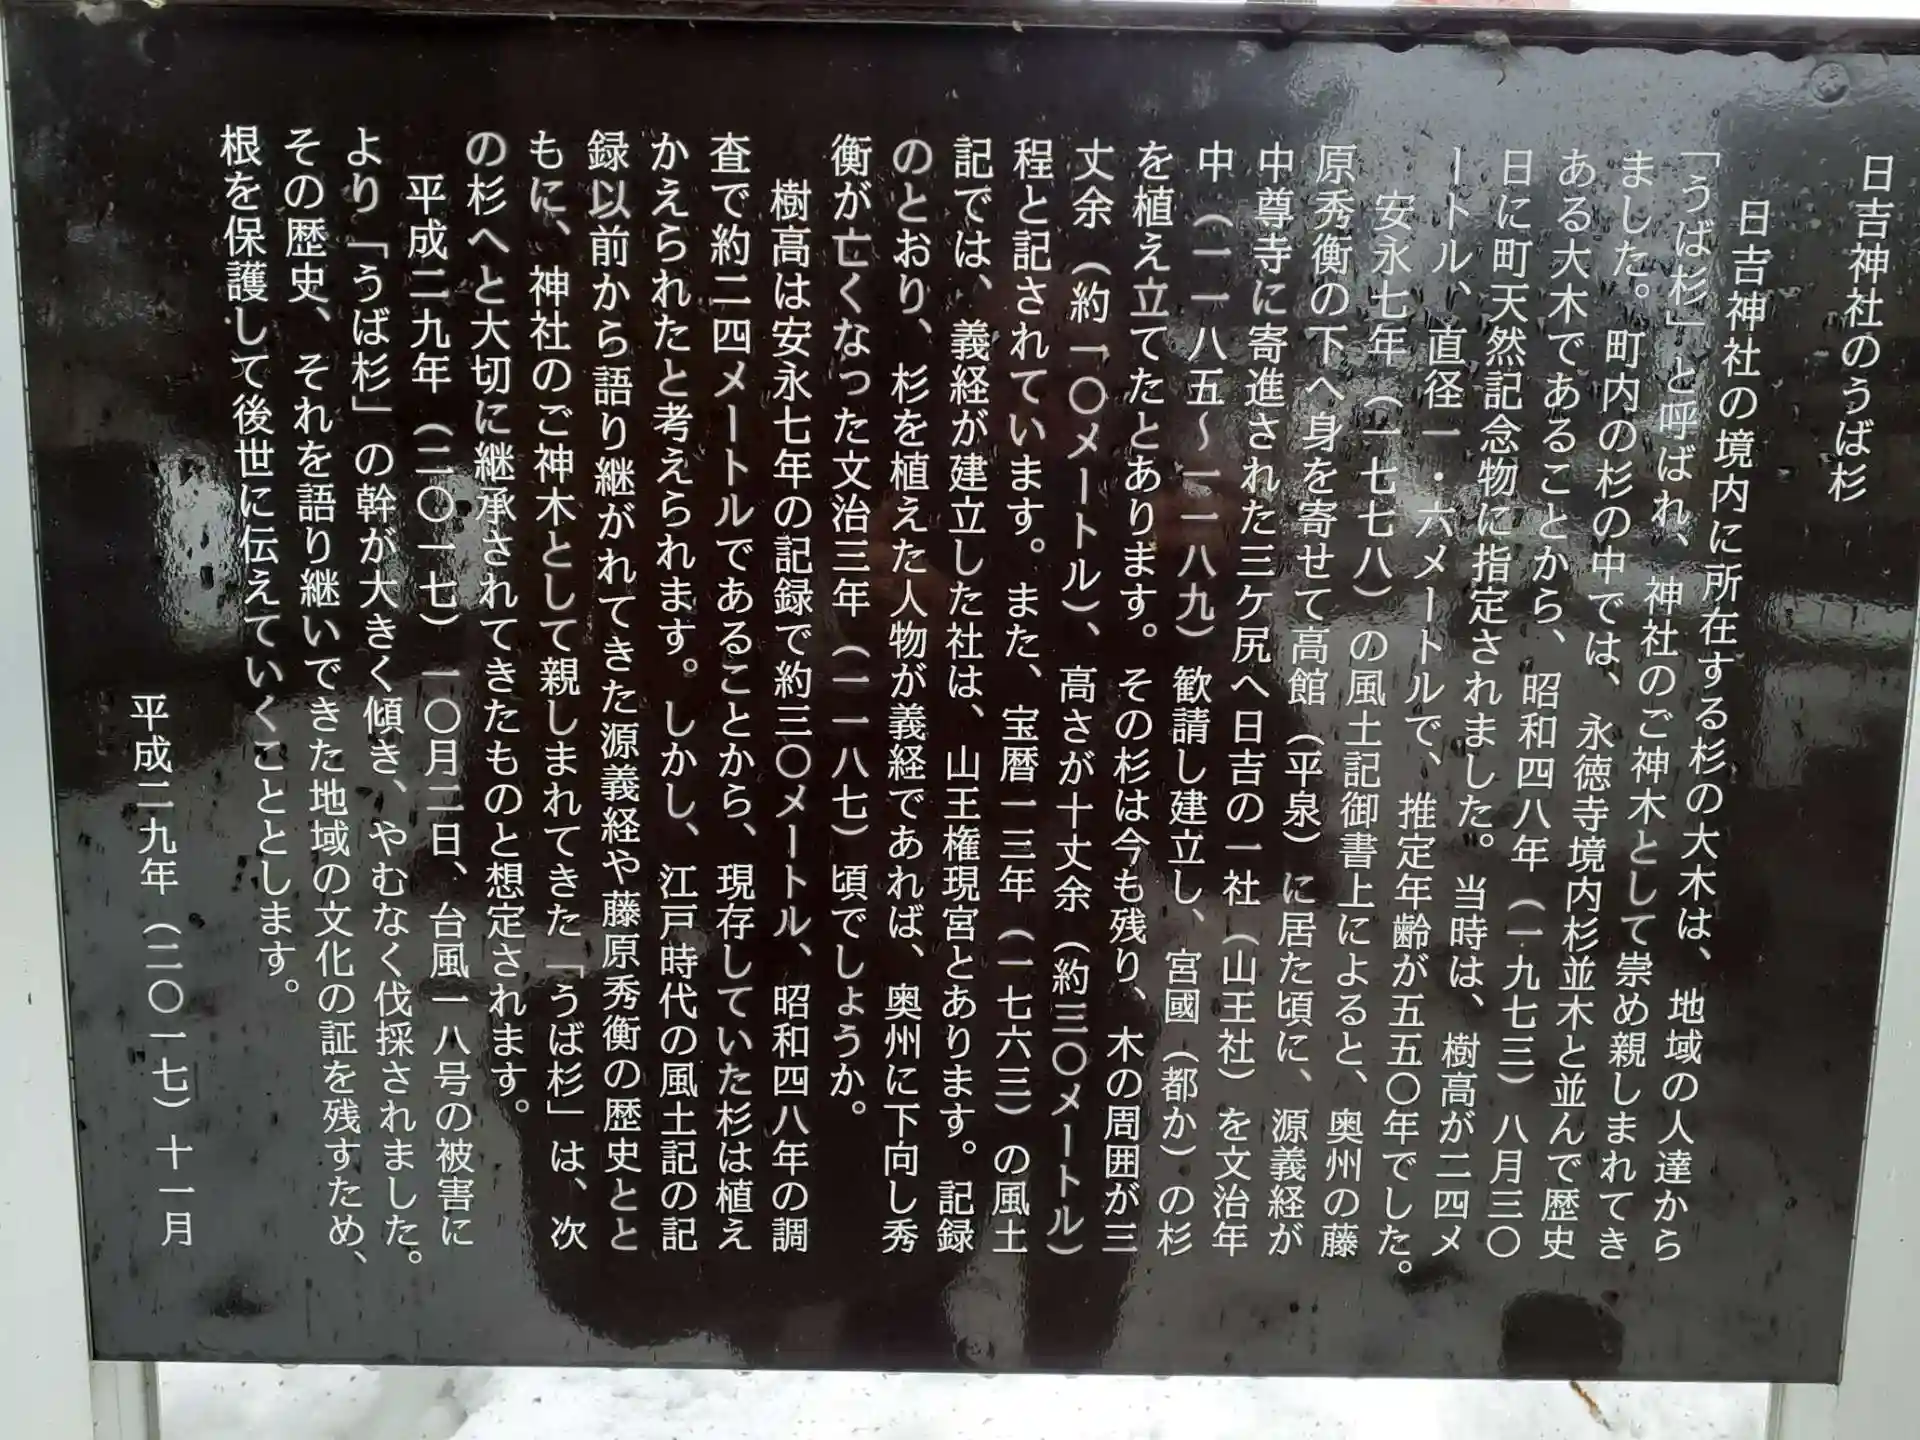 日吉神社のうば杉
日吉神社の境内に所在する杉の大木は、地域の人達から
「うば杉」と呼ばれ、神社のご神木として崇め親しまれてき
ました。町内の杉の中では、永徳寺境内杉並木と並んで歴史
ある大木であることから、昭和四八年（一九七三）八月三〇
日に町天然記念物に指定されました。当時は、樹高が二四メ
ートル、直径一・六メートルで、推定年齢が五五〇年でした。
安永七年（一七七八）の風土記御書上によると、奥州の藤
原秀衡の下へ身を寄せて高館（平泉）に居た頃に、源義経が
中尊寺に寄進された三ケ尻へ日吉の一社（山王社）を文治年
中（一一八五～一一八九）歓請し建立し、宮國（都か）の杉
を植え立てたとあります。その杉は今も残り、木の周囲が三
丈余（約一〇メートル）、高さが十丈余（約三〇メートル）
程と記されています。また、宝暦一三年（一七六三）の風土
記では、義経が建立した社は、山王権現宮とあります。記録
のとおり、杉を植えた人物が義経であれば、奥州に下向し秀
衡が亡くなった文治三年（一一八七）頃でしょうか。
樹高は安永七年の記録で約三〇メートル、昭和四八年の調
査で約二四メートルであることから、現存していた杉は植え
かえられたと考えられます。しかし、江戸時代の風土記の記
録以前から語り継がれてきた源義経や藤原秀衡の歴史とと
もに、神社のご神木として親しまれてきた「うば杉」は、次
の杉へと大切に継承されてきたものと想定されます。
平成二九年（二〇一七）一〇月二日、台風一八号の被害に
より「うば杉」の幹が大きく傾き、やむなく伐採されました。
その歴史、それを語り継いできた地域の文化の証を残すため、
根を保護して後世に伝えていくこととします。
平成二九年（二〇一七）十一月